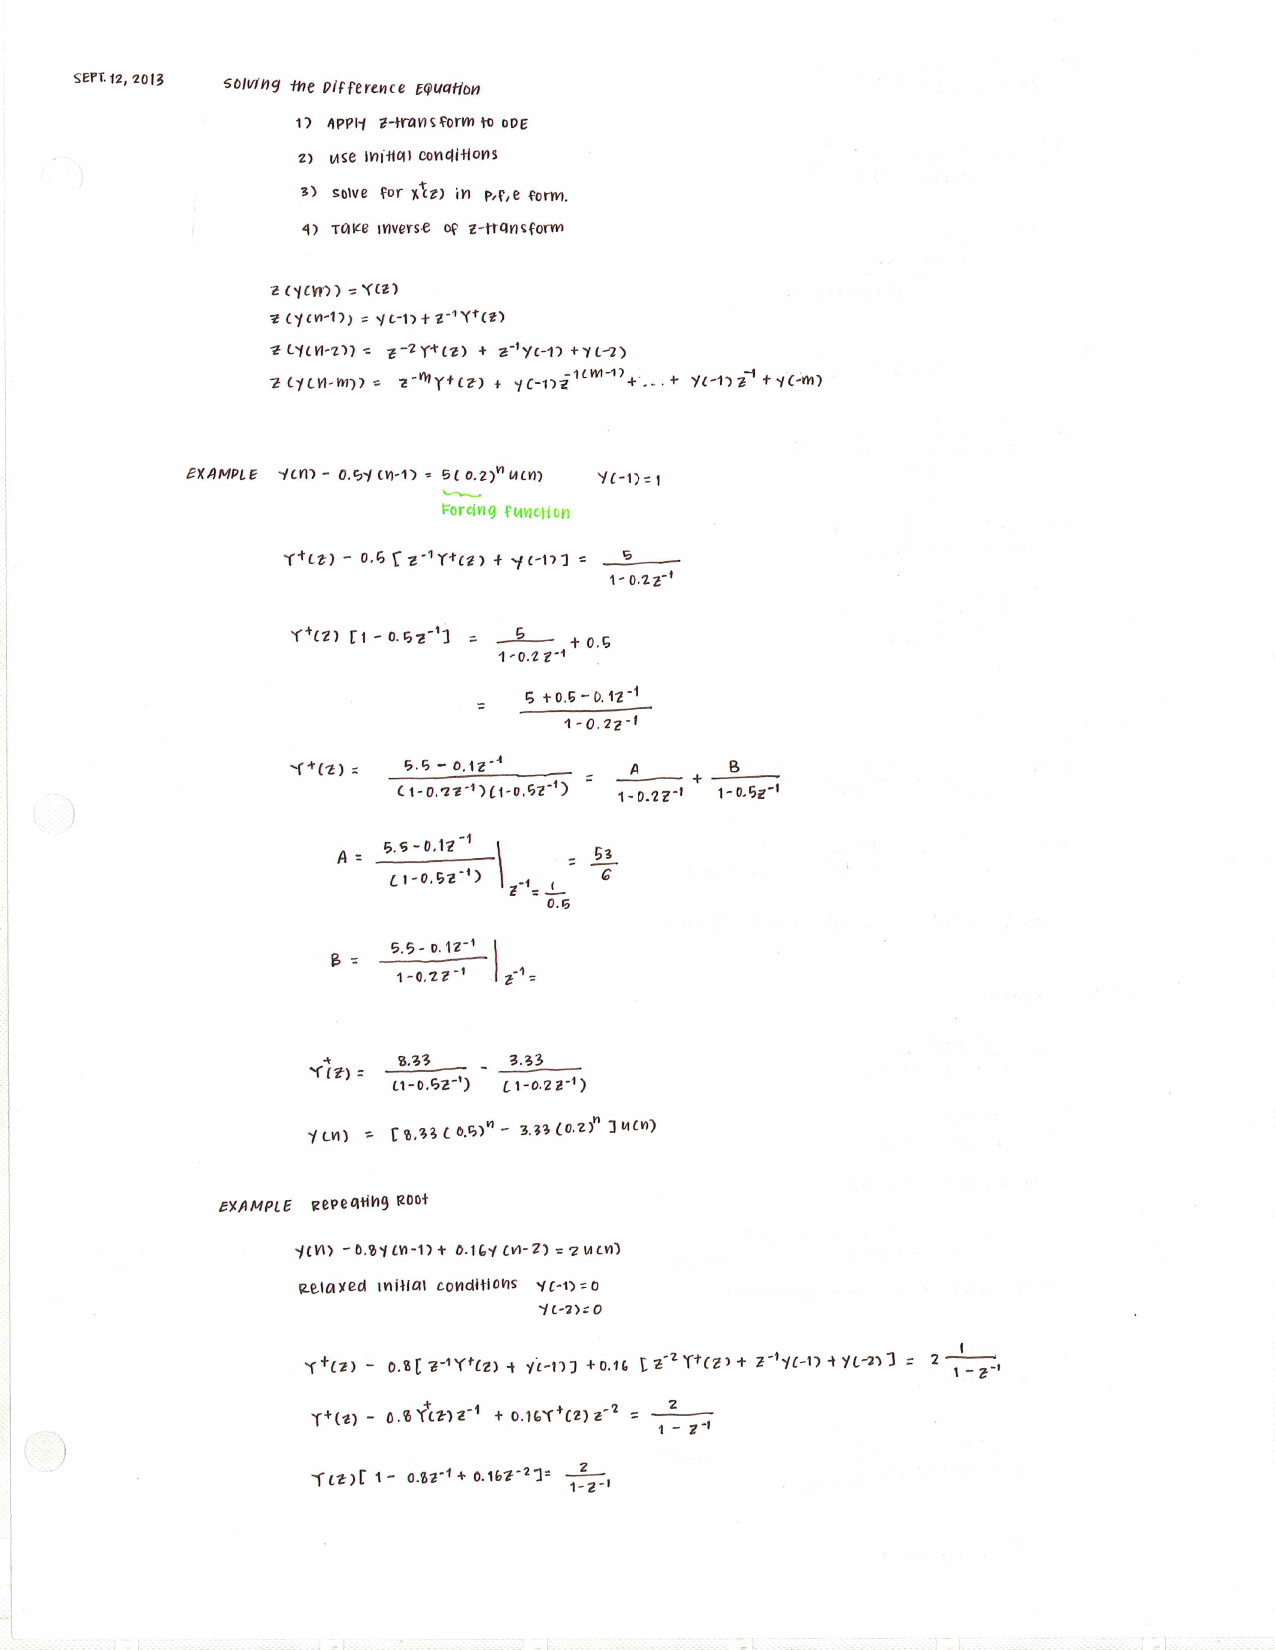 SEPT. 12, 2013
Solving the Difference Equation
1) Apply z-transform to ODE
2) use initial conditions
3) solve for X⁺(z) in p,f,e form.
4) Take inverse of z-transform
z(y(n)) = Y(z)
z(y(n-1)) = y(-1) + z⁻¹Y⁺(z)
z(y(n-2)) = z⁻²Y⁺(z) + z⁻¹y(-1) + y(-2)
z(y(n-m)) = z⁻ᵐY⁺(z) + y(-1)z⁻¹⁽ᵐ⁻¹⁾ + ... + y(-1)z⁻¹ + y(-m)
EXAMPLE y(n) - 0.5y(n-1) = 5(0.2)ⁿu(n) y(-1) = 1
Forcing function
Y⁺(z) - 0.5[z⁻¹Y⁺(z) + y(-1)] = 5 / (1-0.2z⁻¹)
Y⁺(z)[1 - 0.5z⁻¹] = 5 / (1-0.2z⁻¹) + 0.5
= (5 + 0.5 - 0.1z⁻¹) / (1-0.2z⁻¹)
Y⁺(z) = (5.5 - 0.1z⁻¹) / (1-0.2z⁻¹)(1-0.5z⁻¹) = A / (1-0.2z⁻¹) + B / (1-0.5z⁻¹)
A = (5.5-0.1z⁻¹) / (1-0.5z⁻¹) | z⁻¹ = 1/0.5 = 53/6
B = (5.5-0.1z⁻¹) / (1-0.2z⁻¹) | z⁻¹ =
Y⁺(z) = 8.33 / (1-0.5z⁻¹) - 3.33 / (1-0.2z⁻¹)
y(n) = [8.33(0.5)ⁿ - 3.33(0.2)ⁿ]u(n)
EXAMPLE Repeating Root
y(n) - 0.8y(n-1) + 0.16y(n-2) = 2u(n)
Relaxed initial conditions y(-1) = 0
y(-2) = 0
Y⁺(z) - 0.8[z⁻¹Y⁺(z) + y(-1)] + 0.16[z⁻²Y⁺(z) + z⁻¹y(-1) + y(-2)] = 2 1 / (1-z⁻¹)
Y⁺(z) - 0.8Y⁺(z)z⁻¹ + 0.16Y⁺(z)z⁻² = 2 / (1-z⁻¹)
Y(z)[1 - 0.8z⁻¹ + 0.16z⁻²] = 2 / (1-z⁻¹)